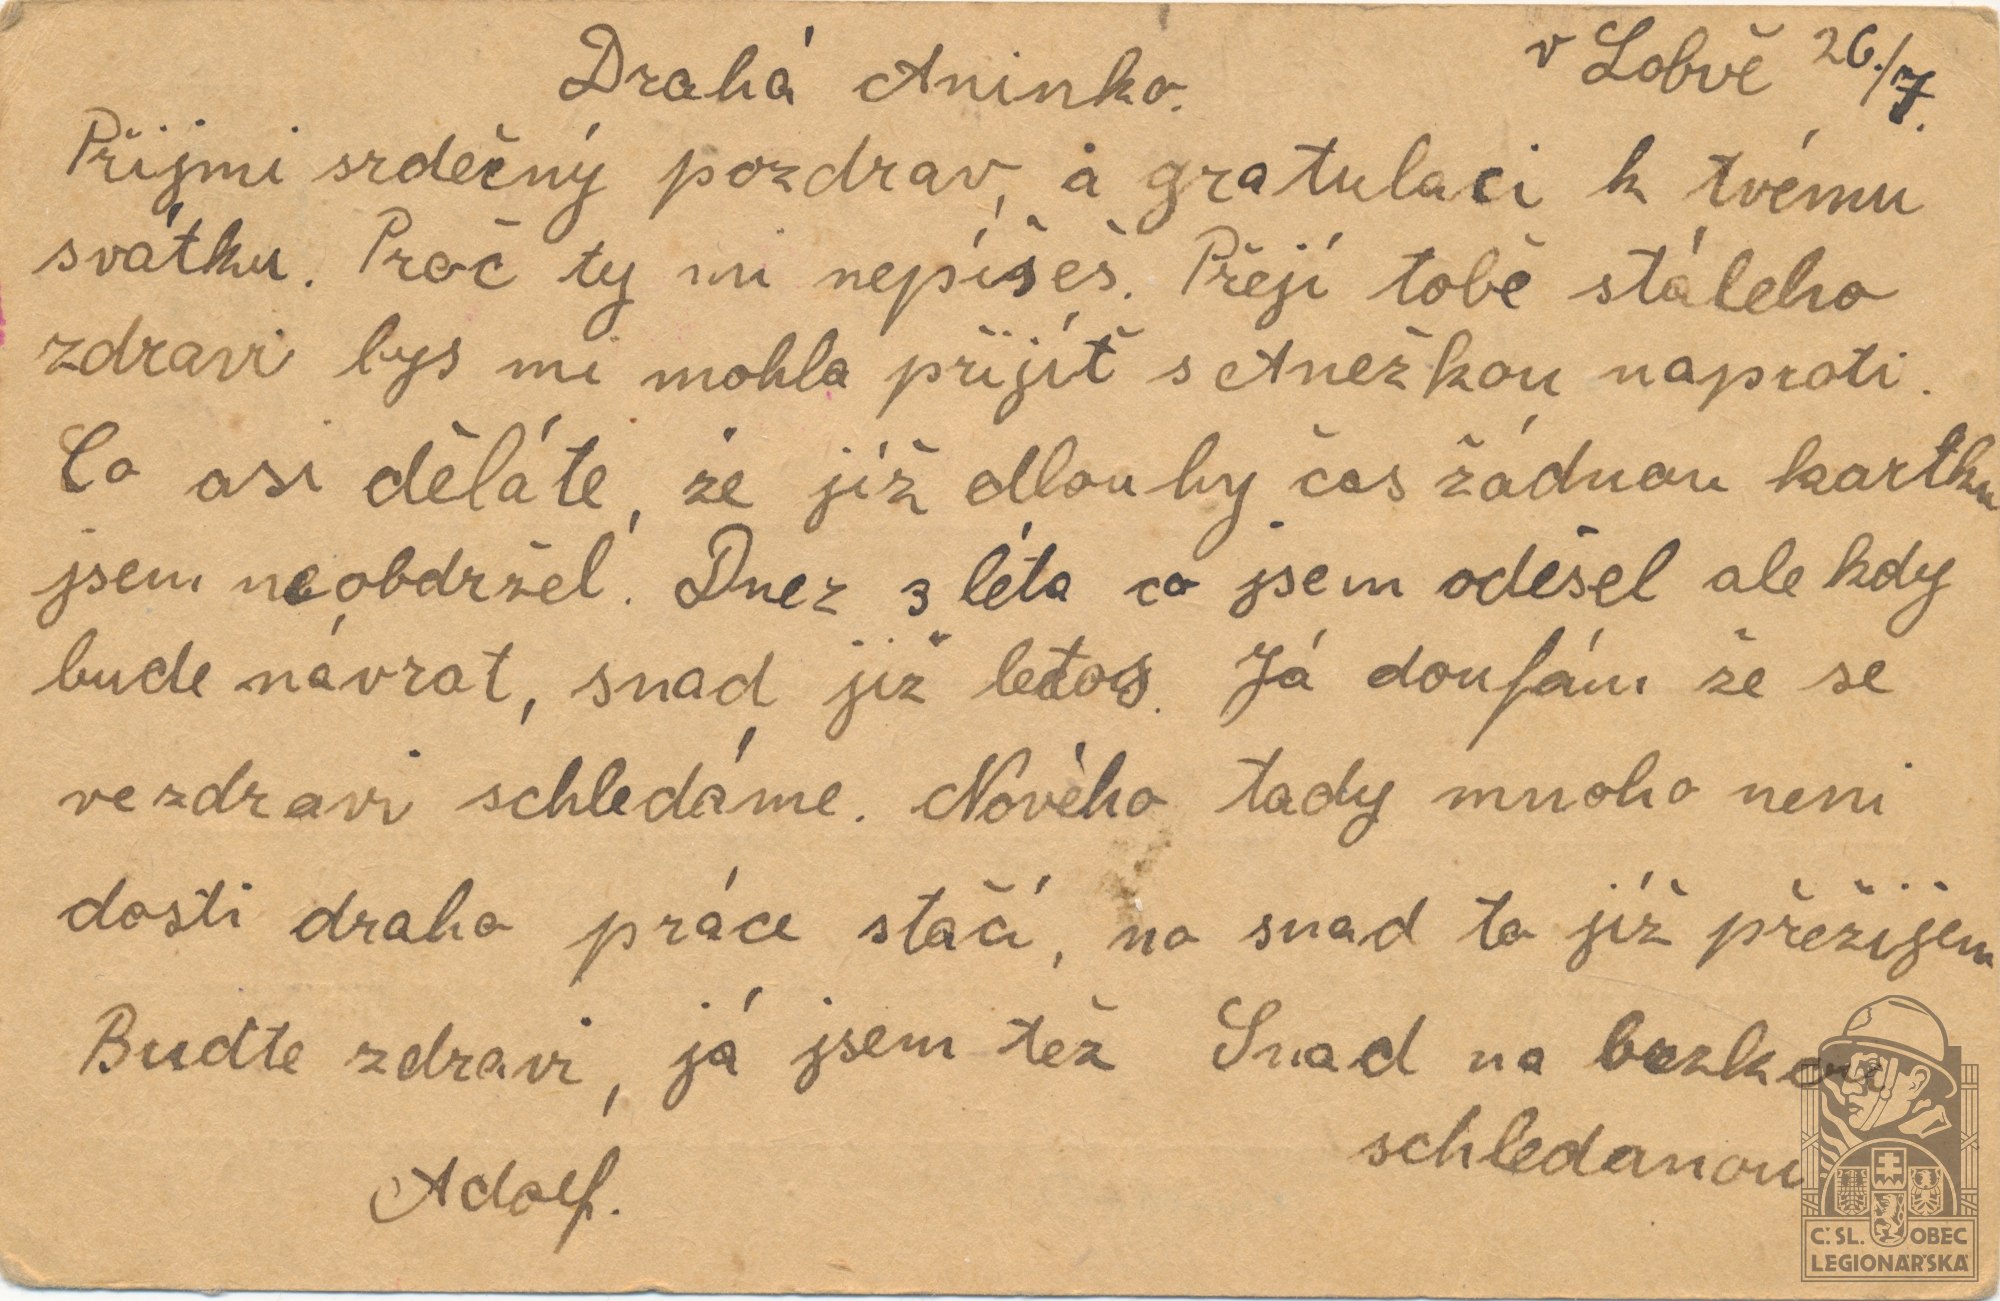 v Lobvě 26./7.
Drahá Aninko.
Přijmi srdečný pozdrav, a gratulaci k tvému
svátku. Proč ty mi nepíšeš. Přejí tobě stáleho
zdravi bys mi mohla přijít s Anežkou naproti.
Co asi děláte, že již dlouhy čas žádnou kartku
jsem neobdržel. Dnez 3 léta co jsem odešel ale kdy
bude návrat, snad již letos. Já doufám že se
ve zdravi schledáme. Nového tady mnoho neni
dosti draho práce stačí, no snad to již přežijem
Buďte zdravi, já jsem též Snad na brzkou
schledanou
Adolf.
Č. SL. OBEC
LEGIONÁŘSKÁ